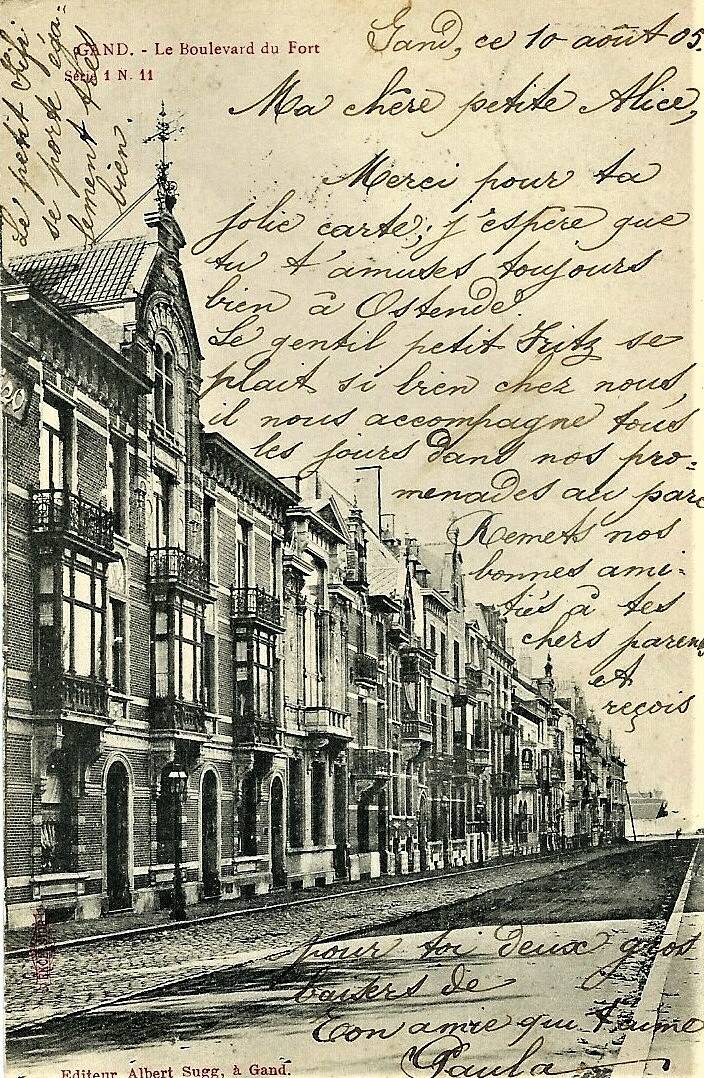 GAND. - Le Boulevard du Fort
Série 1 N. 11
Gand, ce 10 août 05.
Ma chère petite Alice,
Merci pour ta
jolie carte; j'espère que
tu t'amuses toujours
bien à Ostende.
Le gentil petit Fritz se
plait si bien chez nous,
il nous accompagne tous
les jours dans nos pro-
menades au parc
Remets nos
bonnes ami-
tiés à tes
chers parents
et
reçois
pour toi deux gros
baisers de
Ton amie qui t'aime
Paula
Le petit
se porte éga-
lement très
bien.
Editeur Albert Sugg, à Gand.